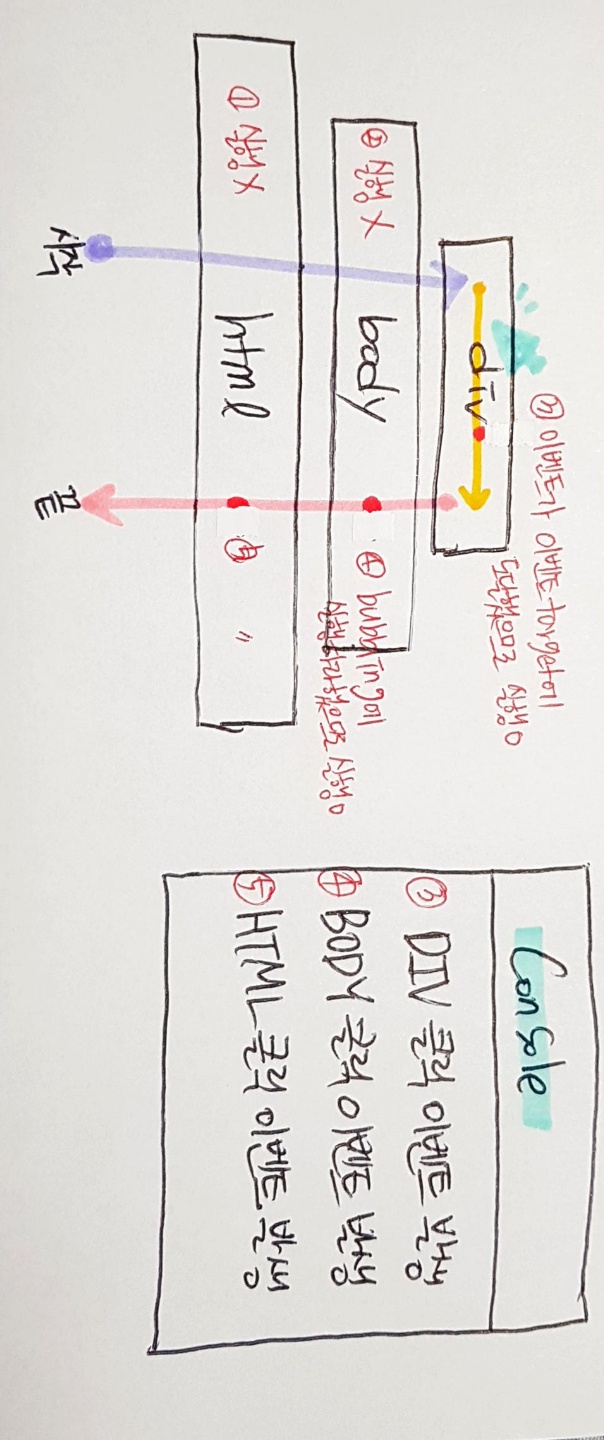 ③ 이벤트가 이벤트target에
도달했으므로 실행O
div
② 실행 X
body
④ bubbling에
실행하라했으므로 실행O
① 실행X
html
⑤ 〃
시작
끝
Console
③ DIV 클릭 이벤트 발생
④ BODY 클릭 이벤트 발생
⑤ HTML 클릭 이벤트 발생